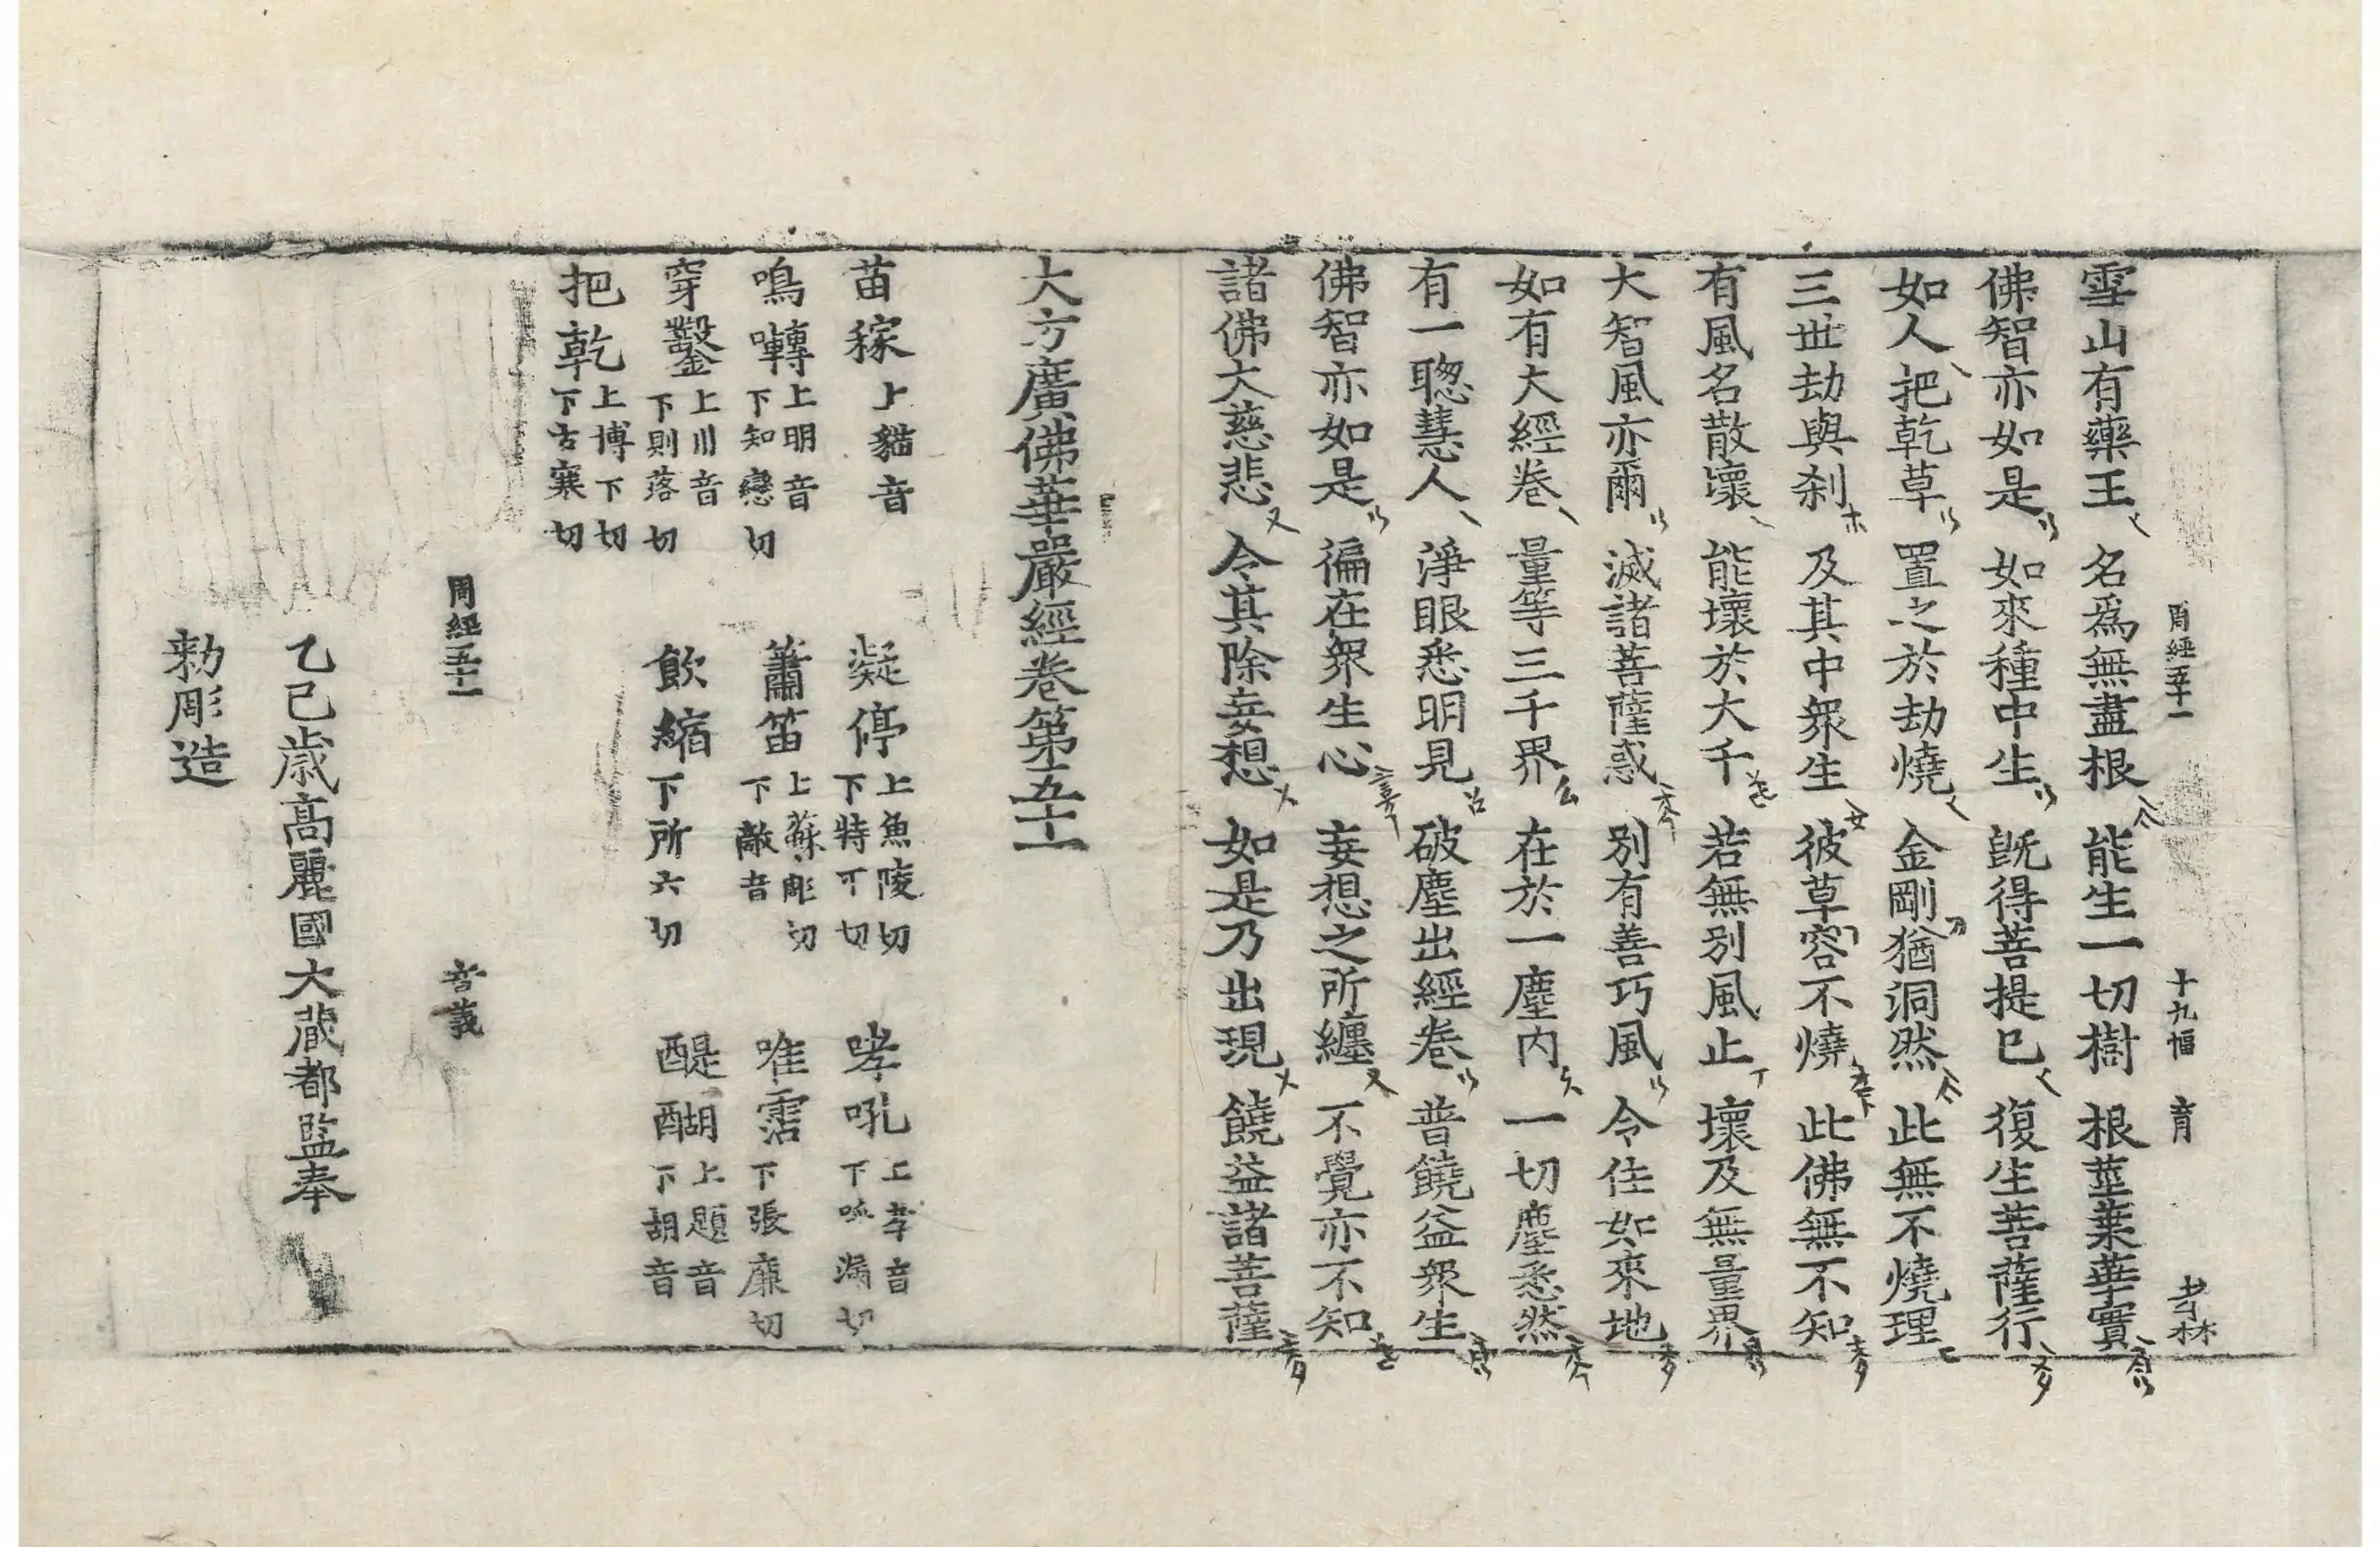 周經五十一 十九幅 育 孝林
雪山有藥王 名爲無盡根 能生一切樹 根莖葉華實
佛智亦如是 如來種中生 旣得菩提已 復生菩薩行
如人把乾草 置之於劫燒 金剛猶洞然 此無不燒理
三世劫與刹 及其中衆生 彼草容不燒 此佛無不知
有風名散壞 能壞於大千 若無別風止 壞及無量界
大智風亦爾 滅諸菩薩惑 別有善巧風 令住如來地
如有大經卷 量等三千界 在於一塵內 一切塵悉然
有一聰慧人 淨眼悉明見 破塵出經卷 普饒益衆生
佛智亦如是 徧在衆生心 妄想之所纏 不覺亦不知
諸佛大慈悲 令其除妄想 如是乃出現 饒益諸菩薩
大方廣佛華嚴經卷第五十一
苗稼 上貓音 凝停 上魚陵切 下特丁切 哮吼 上孝音 下呼漏切
鳴囀 上明音 下知戀切 簫笛 上蘇彫切 下敵音 唯霑 下張廉切
穿鑿 上川音 下則落切 飮縮 下所六切 醍醐 上題音 下胡音
把乾 上博下切 下古寒切
周經五十一 音義
乙巳歲高麗國大藏都監奉
勅彫造